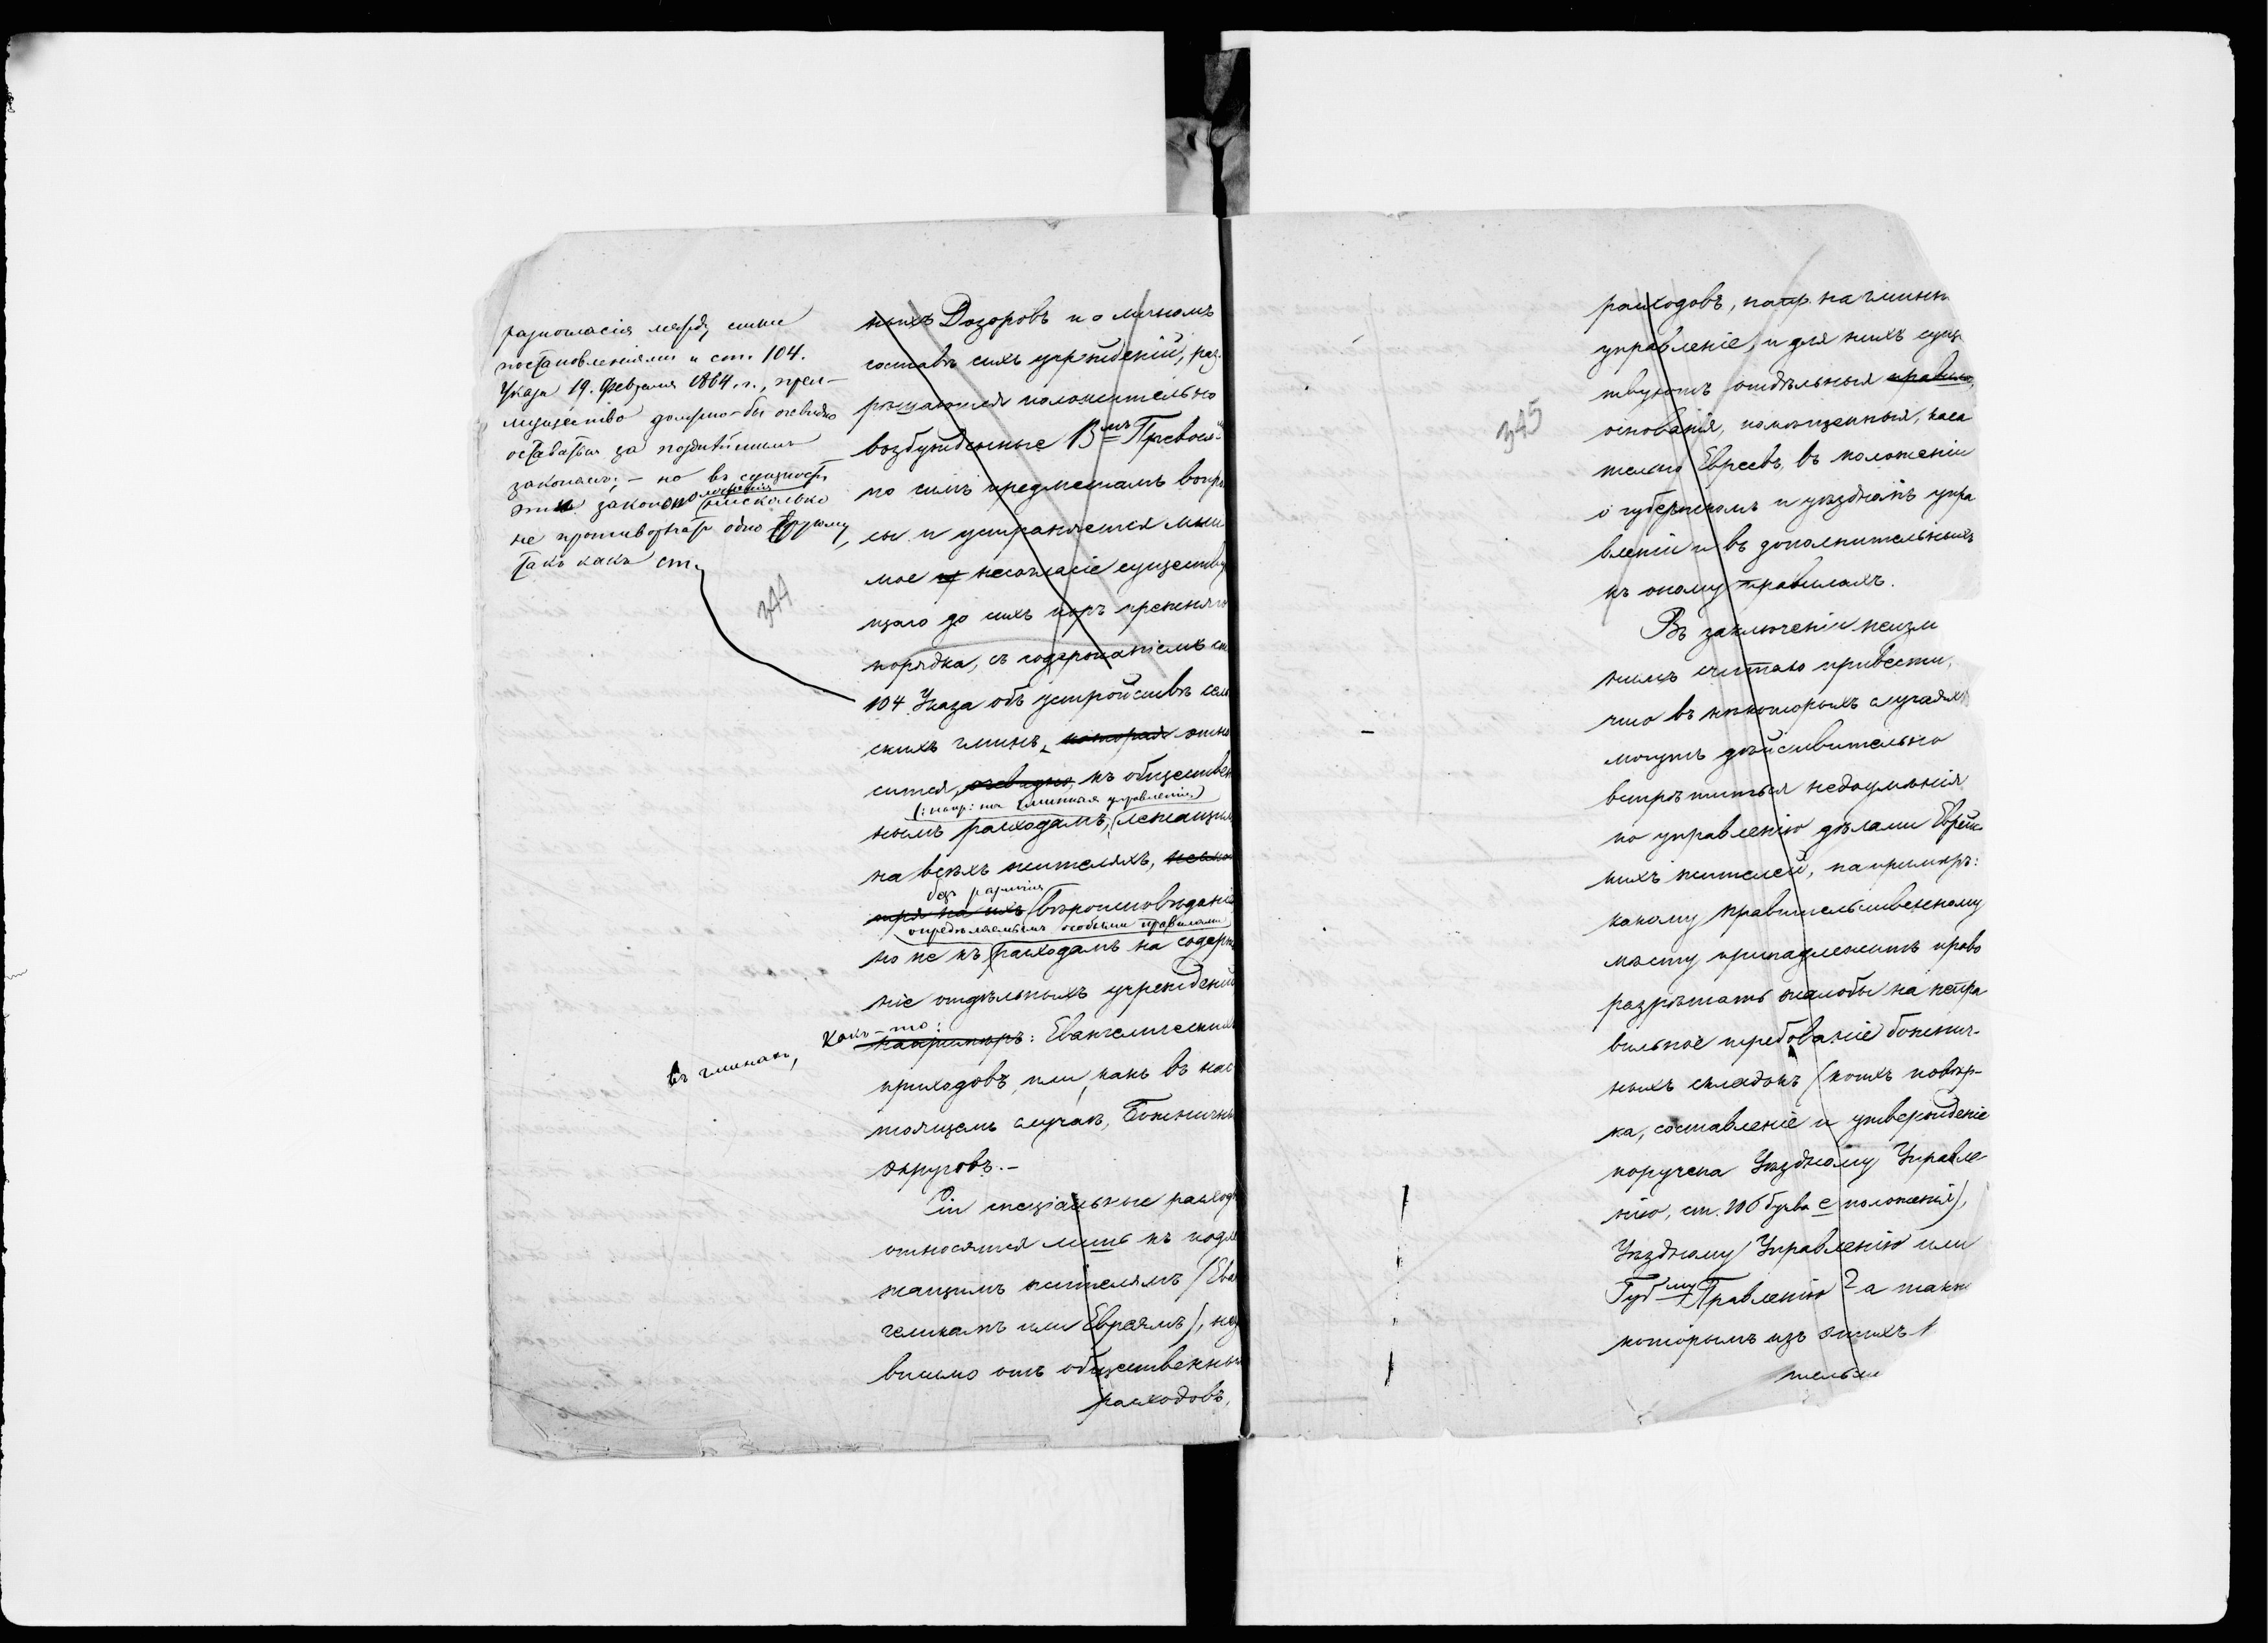 разногласія между сими
постановленіями и ст. 104.
Указа 19. Февраля 1864. г., преи-
мущество должно-бы очевидно
оставаться за позднѣйшимъ
закономъ; – но въ сущности
законоположенія нисколько
не противорѣчатъ одно другому,
такъ какъ ст.
344
ныхъ Дозоровъ и о личномъ
составѣ сихъ учрежденій, раз-
рѣшаются положительно
возбужденные Вмъ Превосх.
по симъ предметамъ вопро
сы и устраняется мни
мое несогласіе существу
щаго до сихъ поръ прежняго
порядка, съ содержаніемъ ст
104 Указа объ устройствѣ сель
скихъ гминъ, которая отно
сится, очевидно, къ обществен
(: напр: на гминная управленія:)
нымъ расходамъ, лежащимъ
на всѣхъ жителяхъ,
безъ различія
тря на ихъ вѣроисповѣданіе
опредѣляемымъ особыми правилами
но не къ расходамъ на содержа
ніе отдѣльныхъ учрежденій
въ гминахъ, какъ-то:
напримѣръ: Евангелическихъ
приходовъ, или, какъ въ нас
тоящемъ случаѣ, Божничны
округовъ. –
Сіи спеціальные расходы
относятся лишь къ подле
жащимъ жителямъ (Еван
геликамъ или Евреямъ), неза
висимо отъ общественныхъ
расходовъ,
345
расходовъ, напр. на гминн
управленіе, и для нихъ сущ
твуютъ отдѣльныя правила,
основанія, помѣщенныя, каса
тельно Евреевъ, въ положеніи
о губернскомъ и уѣздномъ упра
вленіи и въ дополнительныхъ
къ оному правилахъ.
Въ заключеніи неизли
нимъ считаю привести,
что въ нѣкоторыхъ случаяхъ
могутъ дѣйствительно
встрѣтиться недоумѣнія
по управленію дѣлами Еврейс
кихъ жителей, напримѣръ:
какому правительственному
мѣсту принадлежитъ право
разрѣшать жалобы на непра
вильное требованіе божнич-
ныхъ складокъ (коихъ повѣр-
ка, составленіе и утвержденіе
поручена Уѣздному Управле-
нію, ст. 106 буква е положенія),
Уѣздному Управленію или
Губму Правленію? а такж
которымъ изъ этихъ
тельст